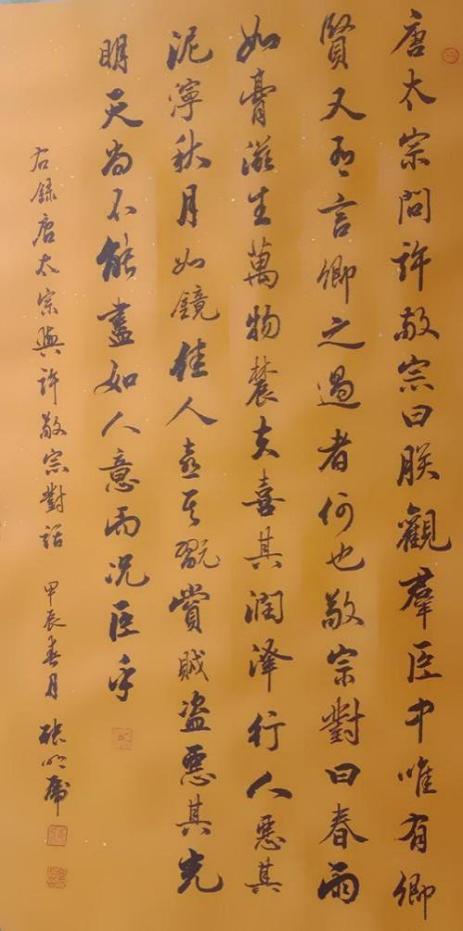 唐太宗問許敬宗曰朕觀羣臣中唯有卿
賢又有言卿之過者何也敬宗對曰春雨
如膏滋生萬物農夫喜其潤澤行人惡其
泥濘秋月如鏡佳人喜其翫賞賊盗惡其光
明天尚不能盡如人意而况臣乎
右録唐太宗與許敬宗對話
甲辰春月 張